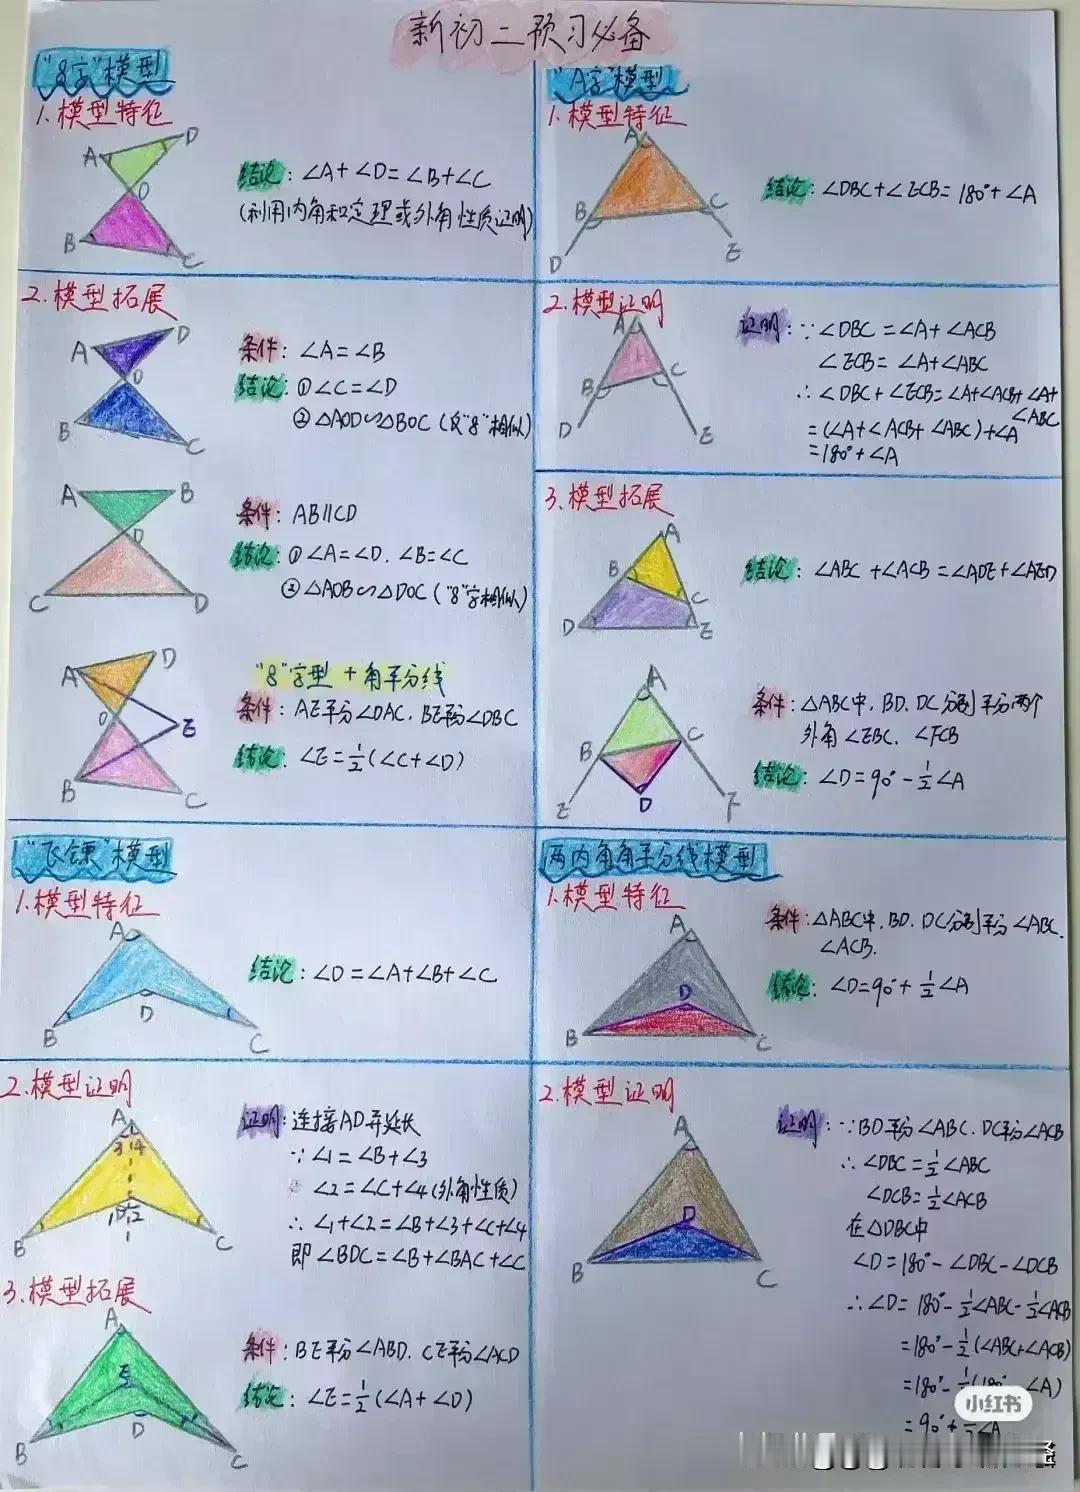 新初二预习必备
"8字"模型
1.模型特征
A
D
O
B
C
结论：∠A+∠D=∠B+∠C
(利用内角和定理或外角性质证明)
2.模型拓展
A
D
O
B
C
条件：∠A=∠B
结论：①∠C=∠D
②△AOD∽△BOC (反"8"相似)
A
B
O
C
D
条件：AB∥CD
结论：①∠A=∠D.∠B=∠C
②△AOB∽△DOC ("8"字相似)
"8"字型+角平分线
A
D
O
E
B
C
条件：AE平分∠DAC.BE平分∠DBC
结论：∠E=½(∠C+∠D)
"飞镖"模型
1.模型特征
A
D
B
C
结论：∠D=∠A+∠B+∠C
2.模型证明
A
3 4
1 D 2
B
C
证明：连接AD并延长
∵∠1=∠B+∠3
∠2=∠C+∠4(外角性质)
∴∠1+∠2=∠B+∠3+∠C+∠4
即∠BDC=∠B+∠BAC+∠C
3.模型拓展
A
E
D
B
C
条件：BE平分∠ABD.CE平分∠ACD
结论：∠E=½(∠A+∠D)
"A字"模型
1.模型特征
A
B
C
D
E
结论：∠DBC+∠ECB=180°+∠A
2.模型证明
A
B
C
D
E
证明：∵∠DBC=∠A+∠ACB
∠ECB=∠A+∠ABC
∴∠DBC+∠ECB=∠A+∠ACB+∠A+
∠ABC
=(∠A+∠ACB+∠ABC)+∠A
=180°+∠A
3.模型拓展
A
B
C
D
E
结论：∠ABC+∠ACB=∠ADE+∠AED
A
B
C
E
D
F
条件：△ABC中，BD、DC分别平分两个
外角∠EBC.∠FCB
结论：∠D=90°-½∠A
两内角角平分线模型
1.模型特征
A
D
B
C
条件：△ABC中.BD.DC分别平分∠ABC.
∠ACB.
结论：∠D=90°+½∠A
2.模型证明
A
D
B
C
证明：∵BD平分∠ABC.DC平分∠ACB
∴∠DBC=½∠ABC
∠DCB=½∠ACB
在△DBC中
∠D=180°-∠DBC-∠DCB
∴∠D=180°-½∠ABC-½∠ACB
=180°-½(∠ABC+∠ACB)
=180°-½(180°-∠A)
=90°+½∠A
小红书